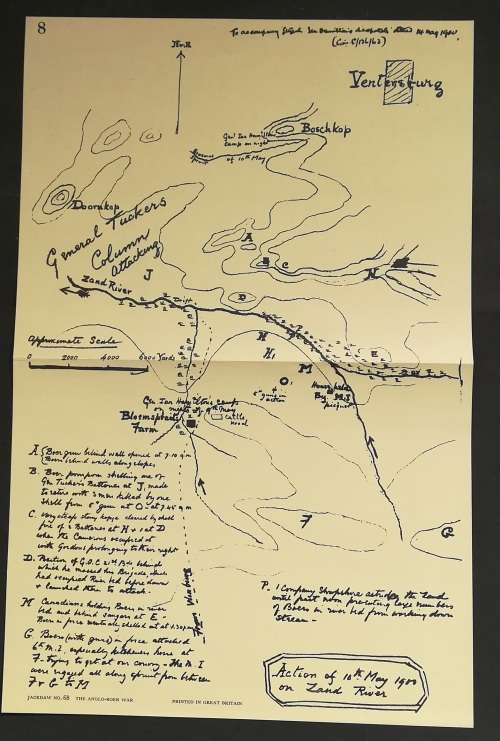 8
To accompany dated 14 May 1900
Ventersburg
Boschkop
Camp on night
of 10th May
Doornkop
General Tuckers
Column
Attacking
J
A
B C
N
Zand River
Drift
D
Approximate Scale
0 2000 4000 6000 Yards
H
H1
E
M
O
5" guns in action
House held
By M.I.
Gen Ian Hamiltons Camp
on night of 9th May
Bloemspruit
Farm
Cattle
Kraal
F
G
A Boer guns behind wall opened at 7.10 a m
Boers behind walls along slopes
B. Boer pompom shelling one of
Gen Tucker's Batteries at J, made
to retire with 3 men killed by one
Shell from 5" gun at O at 7.45 a m
C. Very steep stony kopje cleared by shell
fire of 2 Batteries at H & 1 at D
when the Camerons occupied it
with Gordons prolonging to their right
D. Position of G.O.C 21st Bde behind
which he massed his Brigade, which
had occupied River bed before dawn
& launched them to attack.
M Canadians holding Boers in river
bed and behind sangars at E -
Boers in force eventually shelled out at
G Boers (with guns) in force attacked
6th M.I. especially Kitcheners horse at
F - trying to get at our convoy - The M.I
were engaged all along spruit from between
F & G to M
P. 1 Company Shropshire astride the Zand
until past noon preventing large numbers
of Boers in river bed from working down
Stream -
Action of 10th May 1900
on Zand River
JACKDAW NO. 68 THE ANGLO-BOER WAR
PRINTED IN GREAT BRITAIN